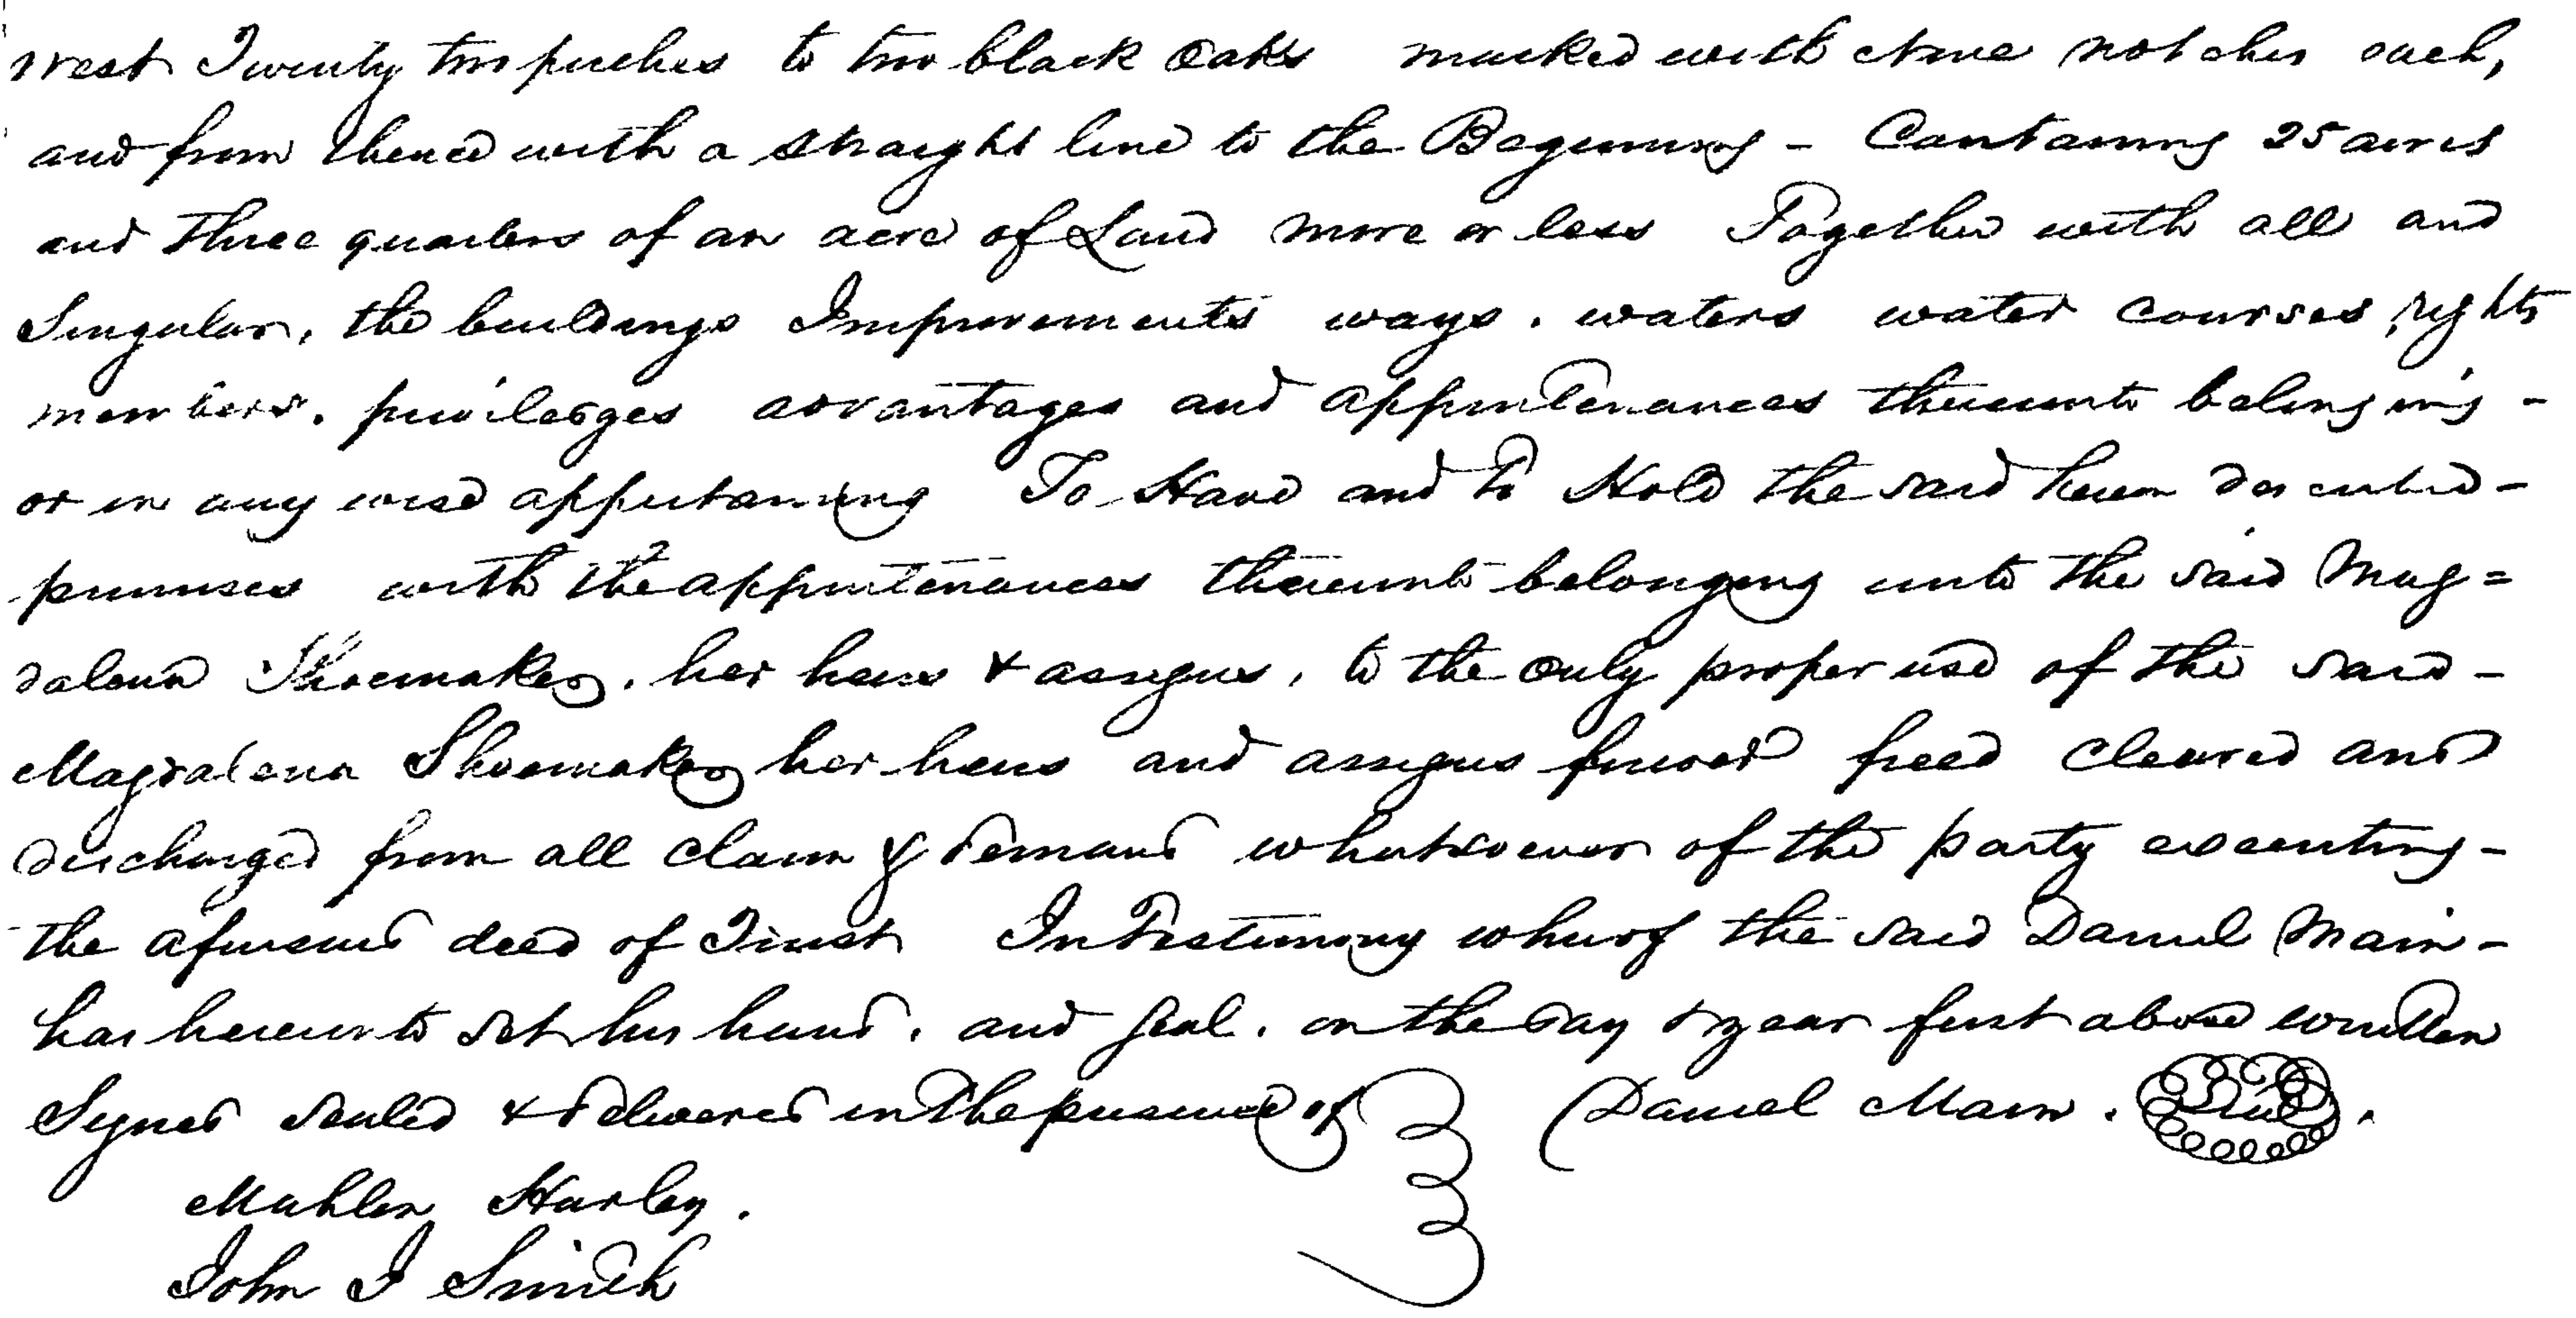 west Twenty two perches to two black Oaks marked with nine notches each,
and from thence with a straight line to the Beginning - Containing 25 acres
and three quarters of an acre of Land more or less Together with all and
Singular, the buildings Improvements ways. waters water courses, rights
members. privileges advantages and appurtenances thereunto belonging -
or in any wise appertaining To Have and to Hold the said herein described -
premises with the appurtenances thereunto belonging unto the said Mag=
dalena Shoemaker, her heirs & assigns, to the only proper use of the said -
Magdalena Shoemaker her heirs and assigns forever freed cleared and
discharged from all claim & demand whatsoever of the party executing -
the aforesaid deed of Trust In Testimony whereof the said Daniel Main -
has hereunto set his hand. and seal. on the day & year first above written
Signed sealed & delivered in the presence of Daniel Main. Seal.
Mahlon Harley.
John I Smith